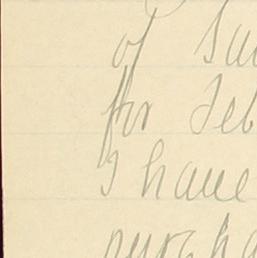 of Sa
for Feb
I have
purcha